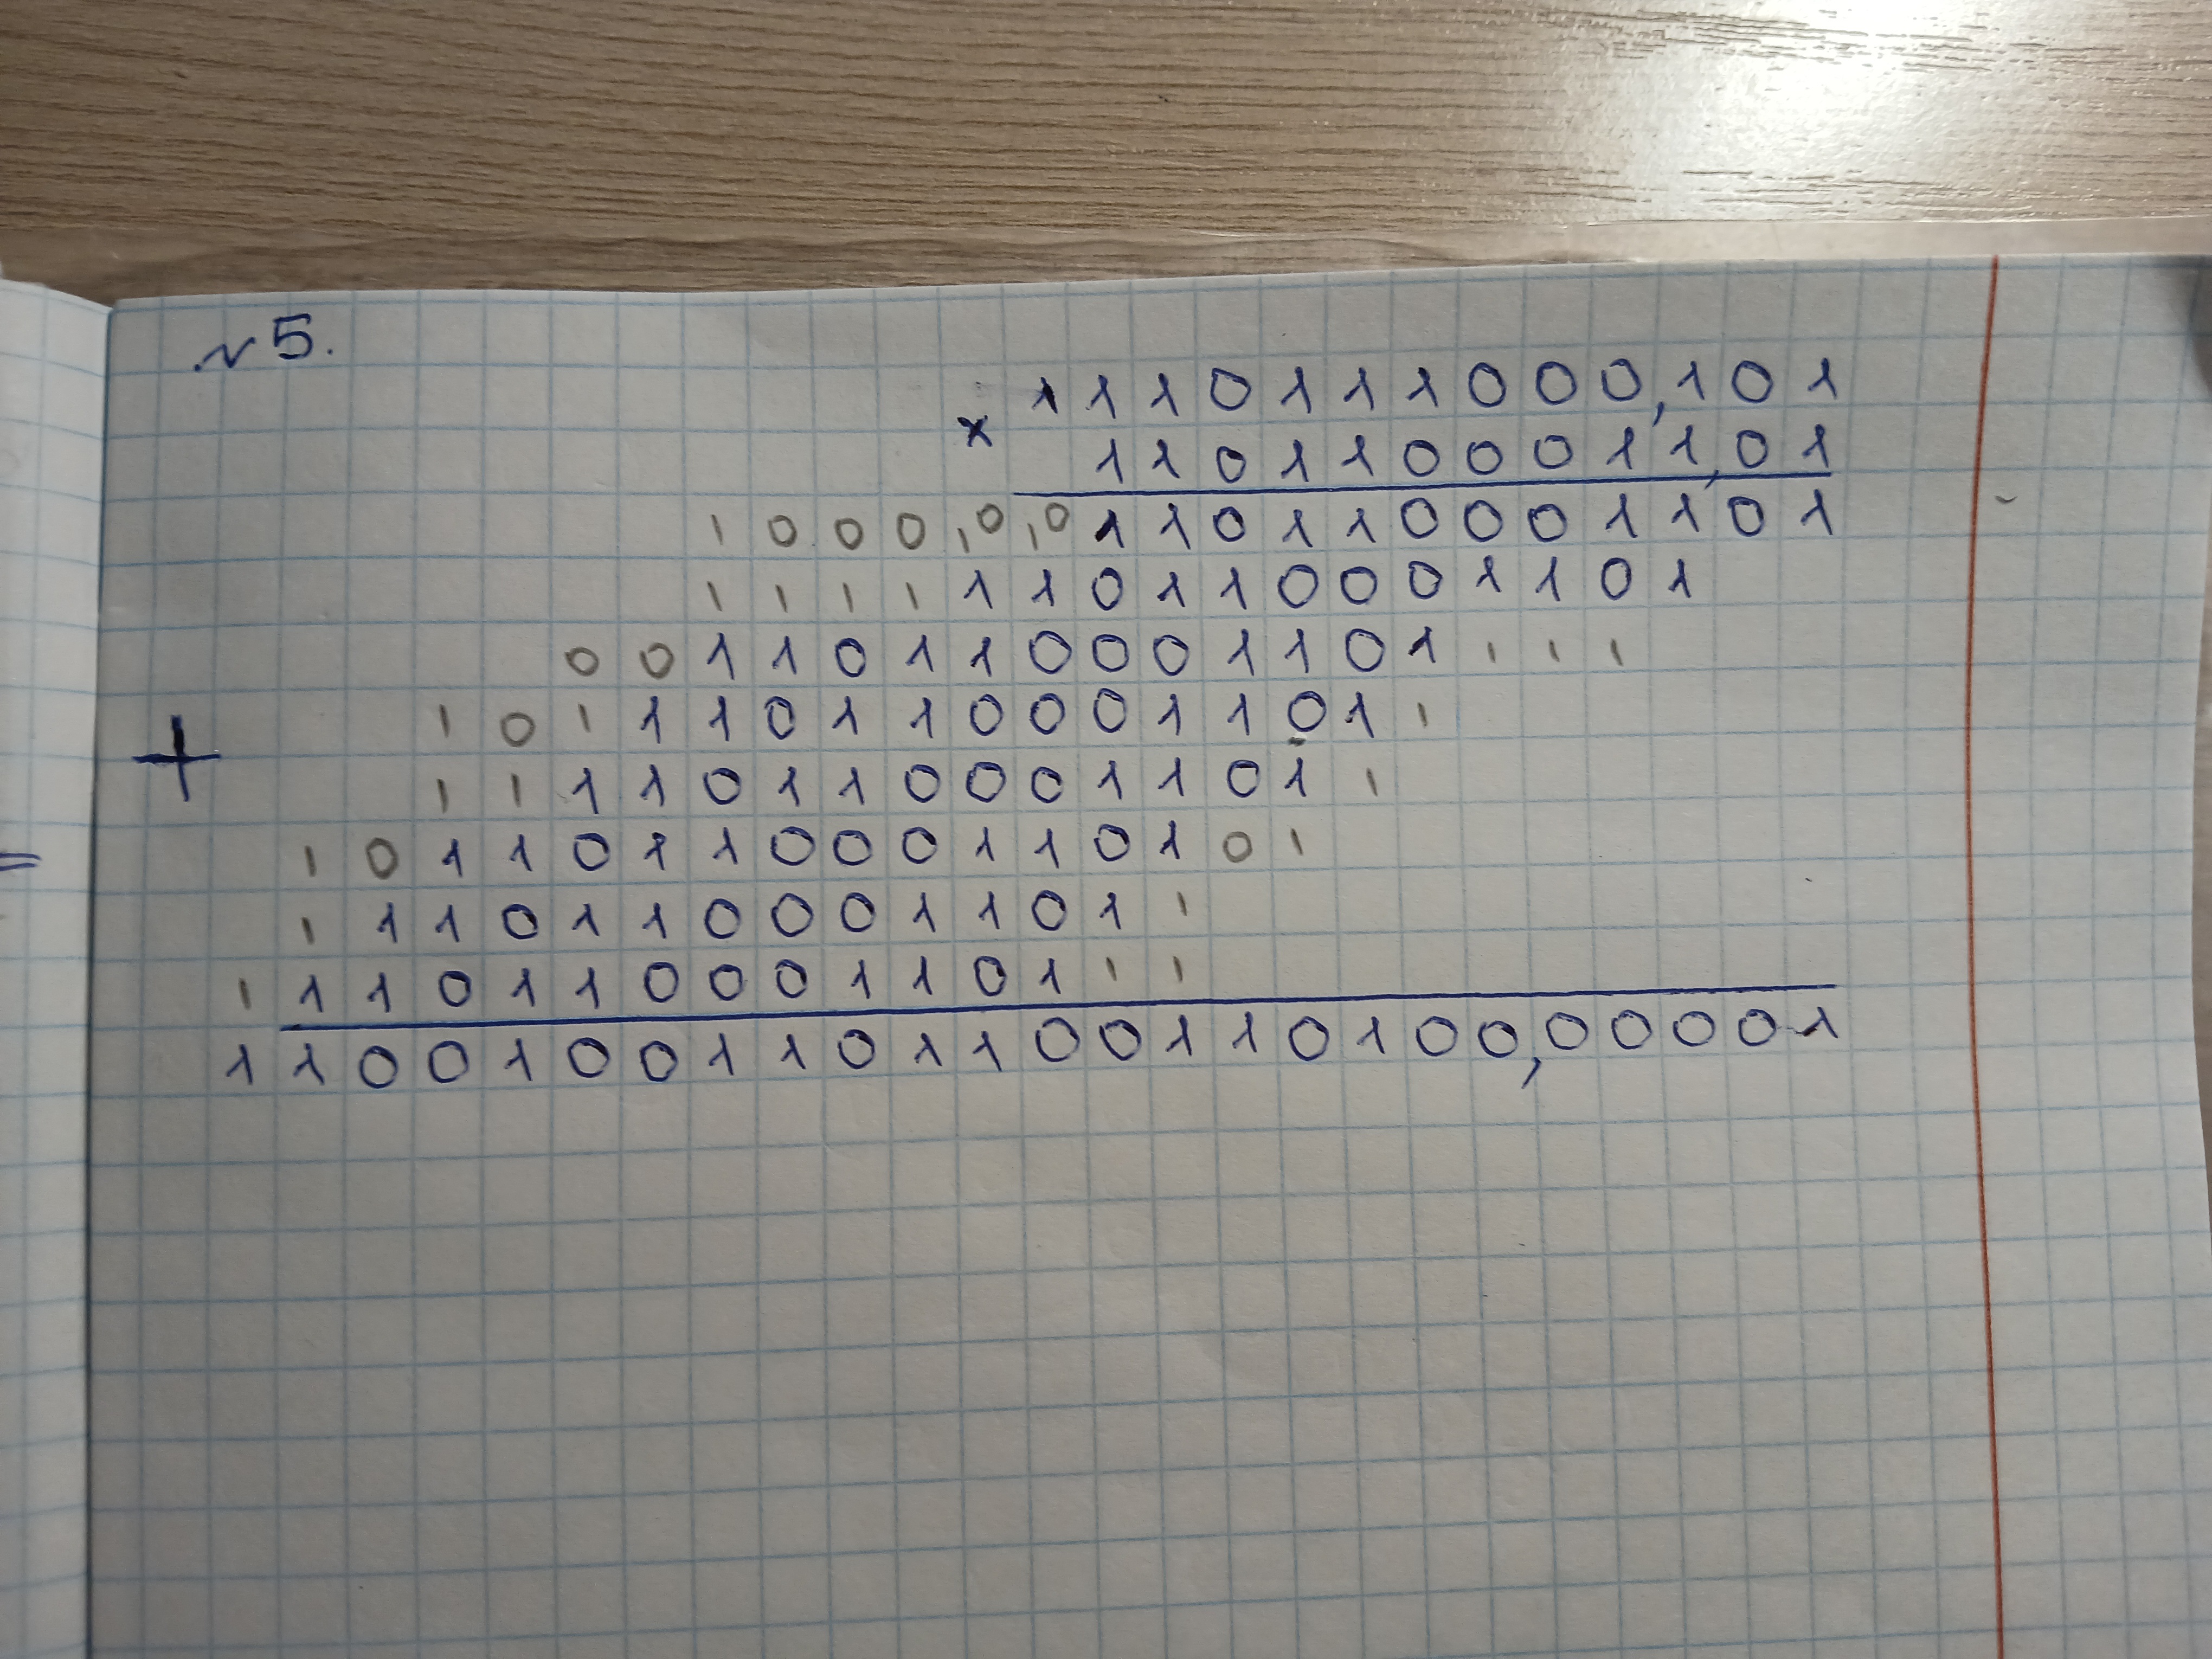 №5.
1110111000,101
× 1101100011,01
1000,0,0110110001101
1111110110001101
00110110001101111
1011101100011011
+ 111101100011011
1011011000110101
11101100011011
111011000110111
110010011011001101000,00001